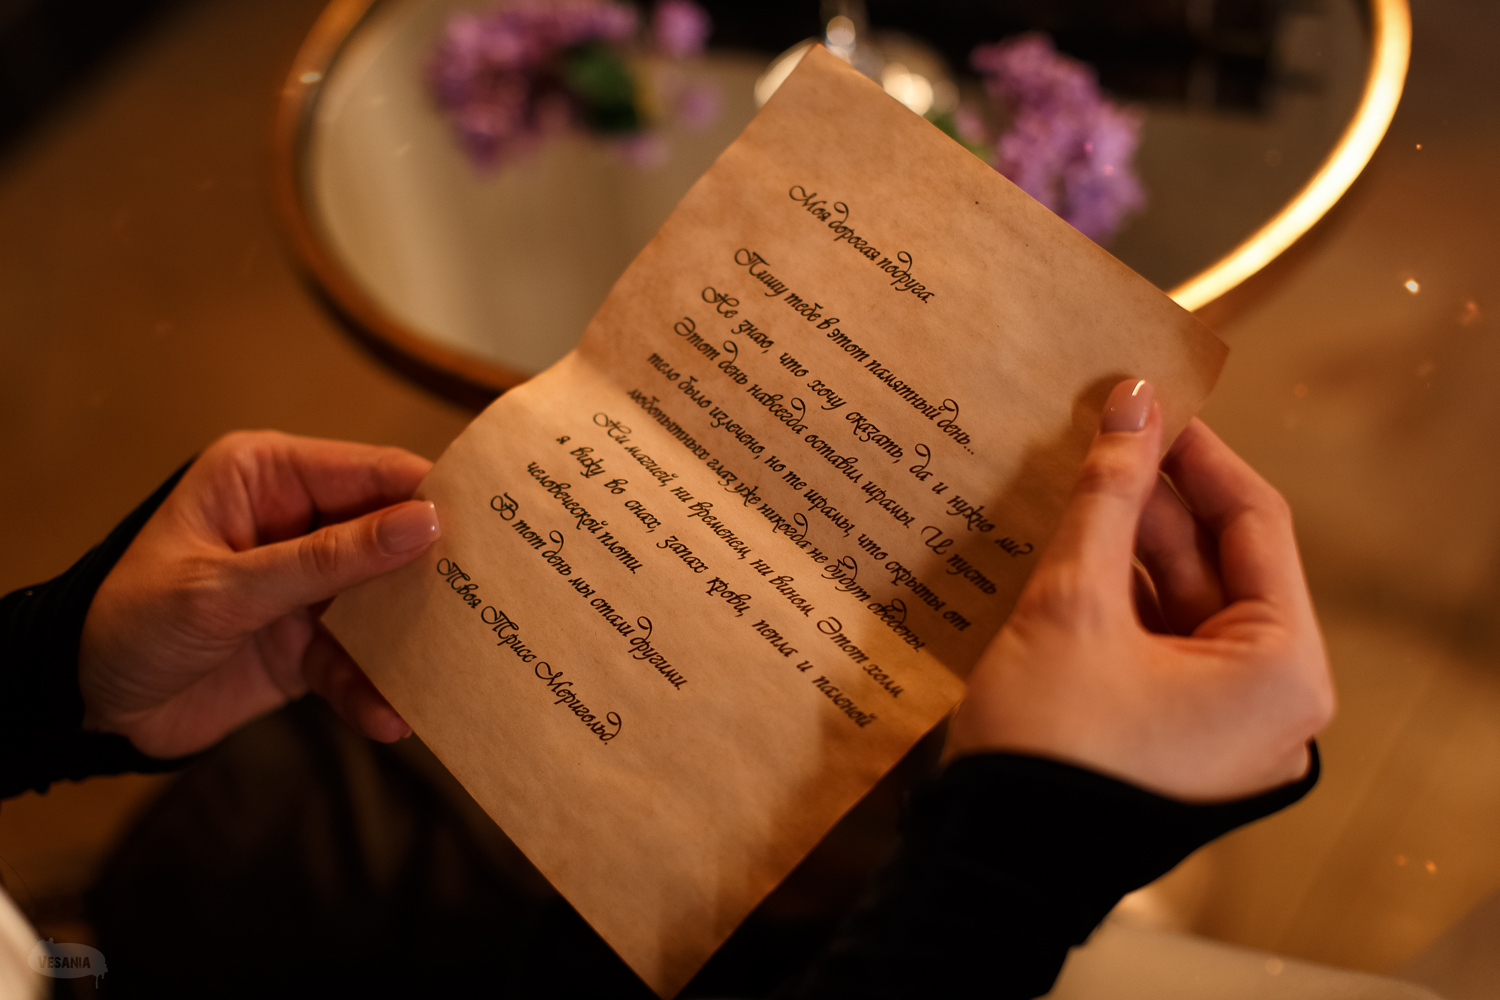 Моя дорогая подруга.
Пишу тебе в этот памятный день...
Не знаю, что хочу сказать, да и нужно ли?
Этот день навсегда оставил шрамы. И пусть
тело было излечено, но те шрамы, что скрыты от
любопытных глаз уже никогда не будут сведены.
Ни магией, ни временем, ни вином. Этот холм
я вижу во снах, запах крови, пепла и паленой
человеческой плоти.
В тот день мы стали другими.
Твоя Трисс Меригольд.
VESANIA